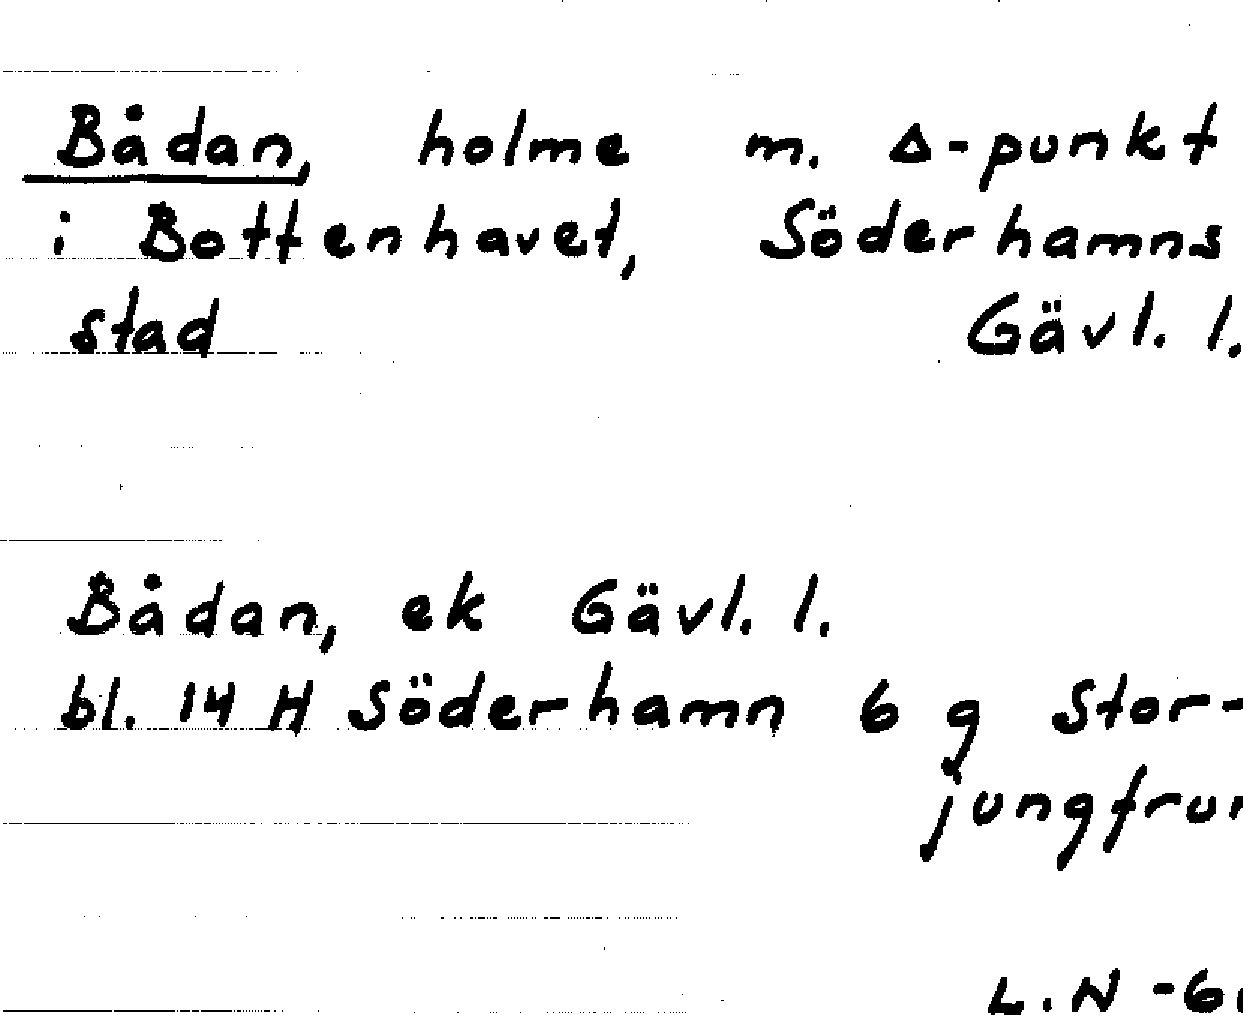 Bådan, holme m. Δ-punkt
i Bottenhavet, Söderhamns
stad Gävl. l.
Bådan, ek Gävl. l.
bl. 14 H Söderhamn 6 g Stor-
jungfrun
L.N -6